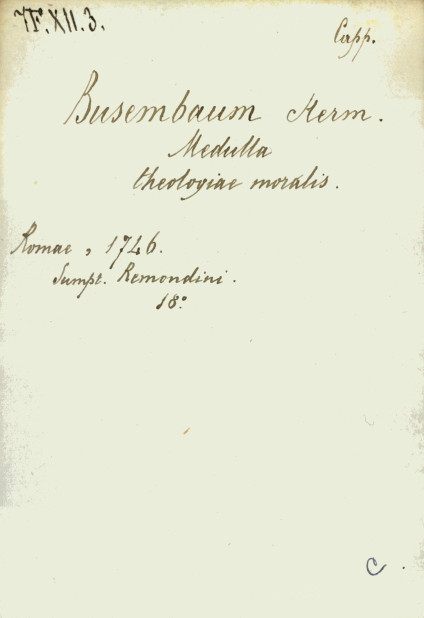 7F.XII.3.
Capp.
Busembaum Herm.
Medulla
theologiae moralis.
Romae, 1746.
Sumpt. Remondini.
18°
C.